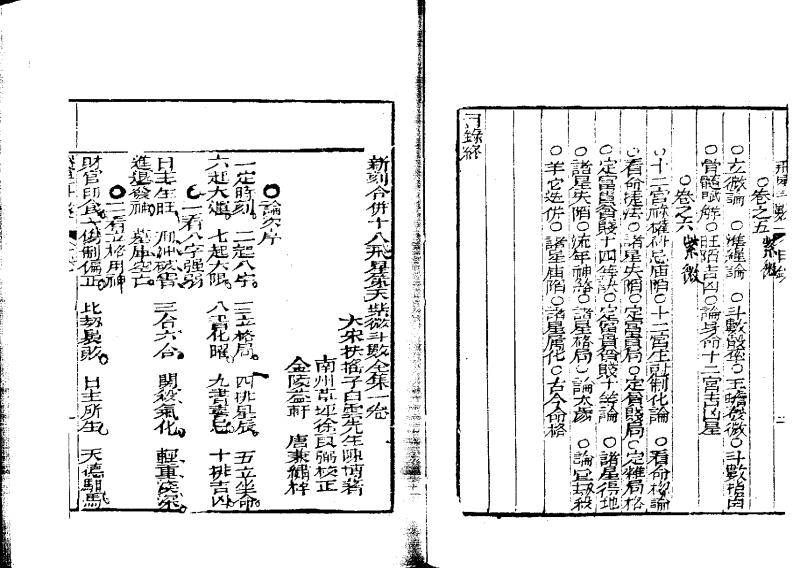 卷之五 紫微
○立微論 ○ 論 ○斗數骰 ○玉蟾發微○斗數指南
○骨髓賦解○旺陷吉凶○論身命十二宮吉凶星
○卷之六 紫微
○十二宮 廟陷 ○十二宮生剋制化論 ○看命格論
○看命捷法○諸星失陷○定富貴局○定貧賤局○定雜局格
○定富貴貧賤十四等訣○定富貴貧賤十等論 ○諸星得地
○諸星失陷○流年神 ○諸星 局○論太歲 ○論 劫殺
○羊 迭併○諸星廟陷○諸星 化○古今命格
目錄終
新刻合併十八飛星策天紫微斗數全集一卷
大宋扶搖子白雲先生陳摶著
南州 徐良弼校正
金陵益軒 唐秉 梓
○論次序
一定時刻 二起八字 三立格局 四排星辰 五立坐命
六起大運 七起大限 八看化曜 九書喜忌 十排吉凶
○一看八字強弱
日主生旺 刑沖破害 三合六合 閑殺氣化 輕重淺深
進退發神 墓庫空亡
○二看立格用神
財官印食 制偏正 比劫 敗 日主所生 天德馹馬